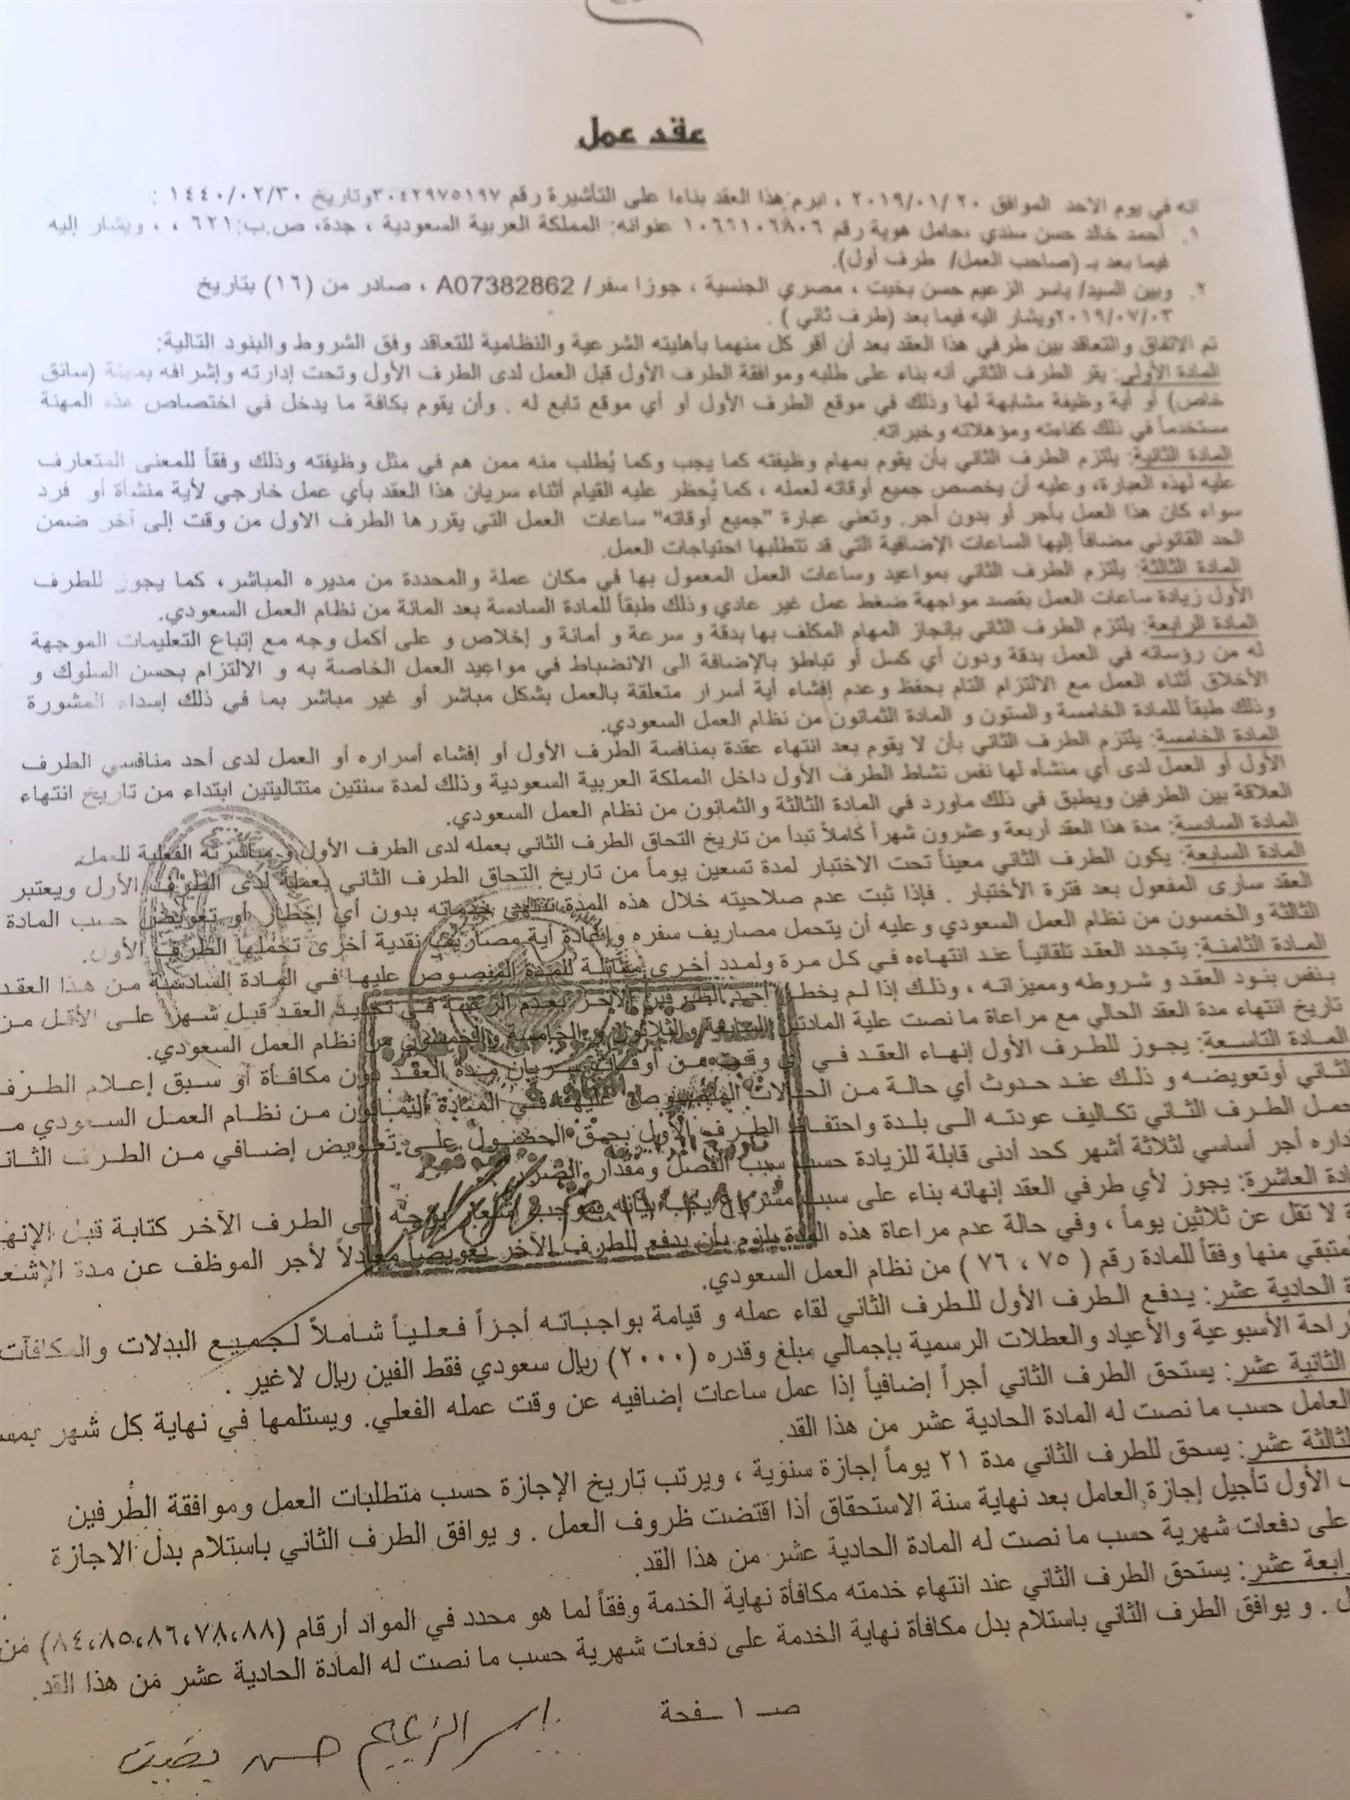 عقد عمل
انه في يوم الاحد الموافق ٢٠١٩/٠١/٢٠ ، ابرم هذا العقد بناءا على التأشيرة رقم ٣٠٤٢٩٧٥١٩٧وتاريخ ١٤٤٠/٠٢/٣٠ :
١. أحمد خالد حسن سندي ،حامل هوية رقم ١٠٦٦١٠٦٨٠٦ عنوانه: المملكة العربية السعودية ، جدة، ص.ب:٦٢١ ، ، ويشار إليه
فيما بعد بـ (صاحب العمل/ طرف أول).
٢. وبين السيد/ ياسر الزعيم حسن بخيت ، مصري الجنسية ، جوزا سفر/ A07382862 ، صادر من (١٦) بتاريخ
٢٠١٩/٠٧/٠٣ويشار اليه فيما بعد (طرف ثاني ) .
تم الاتفاق والتعاقد بين طرفي هذا العقد بعد أن أقر كل منهما بأهليته الشرعية والنظامية للتعاقد وفق الشروط والبنود التالية:
المادة الأولى: يقر الطرف الثاني أنه بناء على طلبه وموافقة الطرف الأول قبل العمل لدى الطرف الأول وتحت إدارته وإشرافه بمهنة (سائق
خاص) أو أية وظيفة مشابهة لها وذلك في موقع الطرف الأول أو أي موقع تابع له . وأن يقوم بكافة ما يدخل في اختصاص هذه المهنة
مستخدماً في ذلك كفاءته ومؤهلاته وخبراته.
المادة الثانية: يلتزم الطرف الثاني بأن يقوم بمهام وظيفته كما يجب وكما يُطلب منه ممن هم في مثل وظيفته وذلك وفقاً للمعنى المتعارف
عليه لهذه العبارة، وعليه أن يخصص جميع أوقاته لعمله ، كما يُحظر عليه القيام أثناء سريان هذا العقد بأي عمل خارجي لأية منشأة أو فرد
سواء كان هذا العمل بأجر أو بدون أجر. وتعني عبارة "جميع أوقاته" ساعات العمل التي يقررها الطرف الاول من وقت إلى آخر ضمن
الحد القانوني مضافاً إليها الساعات الإضافية التي قد تتطلبها احتياجات العمل.
المادة الثالثة: يلتزم الطرف الثاني بمواعيد وساعات العمل المعمول بها في مكان عملة والمحددة من مديره المباشر، كما يجوز للطرف
الأول زيادة ساعات العمل بقصد مواجهة ضغط عمل غير عادي وذلك طبقاً للمادة السادسة بعد المائة من نظام العمل السعودي.
المادة الرابعة: يلتزم الطرف الثاني بإنجاز المهام المكلف بها بدقة و سرعة و أمانة و إخلاص و على أكمل وجه مع إتباع التعليمات الموجهة
له من رؤسائه في العمل بدقة ودون أي كسل أو تباطؤ بالإضافة الى الانضباط في مواعيد العمل الخاصة به و الالتزام بحسن السلوك و
الأخلاق أثناء العمل مع الالتزام التام بحفظ وعدم إفشاء أية أسرار متعلقة بالعمل بشكل مباشر أو غير مباشر بما في ذلك إسداء المشورة
وذلك طبقاً للمادة الخامسة والستون و المادة الثمانون من نظام العمل السعودي.
المادة الخامسة: يلتزم الطرف الثاني بأن لا يقوم بعد انتهاء عقدة بمنافسة الطرف الأول أو إفشاء أسراره أو العمل لدى أحد منافسي الطرف
الأول أو العمل لدى أي منشاه لها نفس نشاط الطرف الأول داخل المملكة العربية السعودية وذلك لمدة سنتين متتاليتين ابتداء من تاريخ انتهاء
العلاقة بين الطرفين ويطبق في ذلك ماورد في المادة الثالثة والثمانون من نظام العمل السعودي.
المادة السادسة: مدة هذا العقد أربعة وعشرون شهراً كاملاً تبدأ من تاريخ التحاق الطرف الثاني بعمله لدى الطرف الأول و مباشرته الفعلية للعمل.
المادة السابعة: يكون الطرف الثاني معيناً تحت الاختبار لمدة تسعين يوماً من تاريخ التحاق الطرف الثاني بعمله لدى الطرف الأول ويعتبر
العقد سارى المفعول بعد فترة الأختبار . فإذا ثبت عدم صلاحيته خلال هذه المدة تنتهي خدماته بدون أي إخطار أو تعويض حسب المادة
الثالثة والخمسون من نظام العمل السعودي وعليه أن يتحمل مصاريف سفره وإعادة أية مصاريف نقدية أخرى تحملها الطرف الأول.
المادة الثامنة: يتجدد العقد تلقائياً عند انتهاءه في كل مرة ولمدد أخرى مماثلة للمدة المنصوص عليها في المادة السادسة من هذا العقد
بنفس بنود العقد و شروطه ومميزاته ، وذلك إذا لم يخطر أحد الطرفين الآخر بعدم الرغبة في تجديد العقد قبل شهر على الأقل من
تاريخ انتهاء مدة العقد الحالي مع مراعاة ما نصت علية المادتين السابعة والثلاثون و الخامسة والخمسون من نظام العمل السعودي.
المادة التاسعة: يجوز للطرف الأول إنهاء العقد في أي وقت من أوقات سريان مدة العقد دون مكافأة أو سبق إعلام الطرف
الثاني أوتعويضه و ذلك عند حدوث أي حالة من الحالات المنصوص عليها في المادة الثمانون من نظام العمل السعودي مـ
حمل الطرف الثاني تكاليف عودته الى بلدة واحتفاظ الطرف الأول بحق الحصول على تعويض إضافي من الطرف الثانـ
داره أجر أساسي لثلاثة أشهر كحد أدنى قابلة للزيادة حسب سبب الفصل ومقدار الضرر.
دة العاشرة: يجوز لأي طرفي العقد إنهائه بناء على سبب مشروع يجب بيانه بموجب إشعار يوجه إلى الطرف الآخر كتابة قبل الإنهـ
ة لا تقل عن ثلاثين يوماً ، وفي حالة عدم مراعاة هذه المدة يلزم بأن يدفع للطرف الآخر تعويضاً معادلاً لأجر الموظف عن مدة الإشعـ
لمتبقي منها وفقاً للمادة رقم ( ٧٥ ، ٧٦ ) من نظام العمل السعودي.
ة الحادية عشر: يدفع الطرف الأول للطرف الثاني لقاء عمله و قيامة بواجباته أجراً فعلياً شاملاً لجميع البدلات والمكافآت
لراحة الأسبوعية والأعياد والعطلات الرسمية بإجمالي مبلغ وقدره (٢٠٠٠) ريال سعودي فقط الفين ريال لاغير .
الثانية عشر: يستحق الطرف الثاني أجراً إضافياً إذا عمل ساعات إضافيه عن وقت عمله الفعلي. ويستلمها في نهاية كل شهر بمسـ
العامل حسب ما نصت له المادة الحادية عشر من هذا القد.
لثالثة عشر: يسحق للطرف الثاني مدة ٢١ يوماً إجازة سنوية ، ويرتب تاريخ الإجازة حسب متطلبات العمل وموافقة الطرفين
ف الأول تأجيل إجازة العامل بعد نهاية سنة الاستحقاق أذا اقتضت ظروف العمل . و يوافق الطرف الثاني باستلام بدل الاجازة
على دفعات شهرية حسب ما نصت له المادة الحادية عشر من هذا القد.
رابعة عشر: يستحق الطرف الثاني عند انتهاء خدمته مكافأة نهاية الخدمة وفقاً لما هو محدد في المواد أرقام (٨٤،٨٥،٨٦،٧٨،٨٨) من
ل . و يوافق الطرف الثاني باستلام بدل مكافأة نهاية الخدمة على دفعات شهرية حسب ما نصت له المادة الحادية عشر من هذا القد.
صـ ١ ـفحة
ياسر الزعيم حسن بخيت